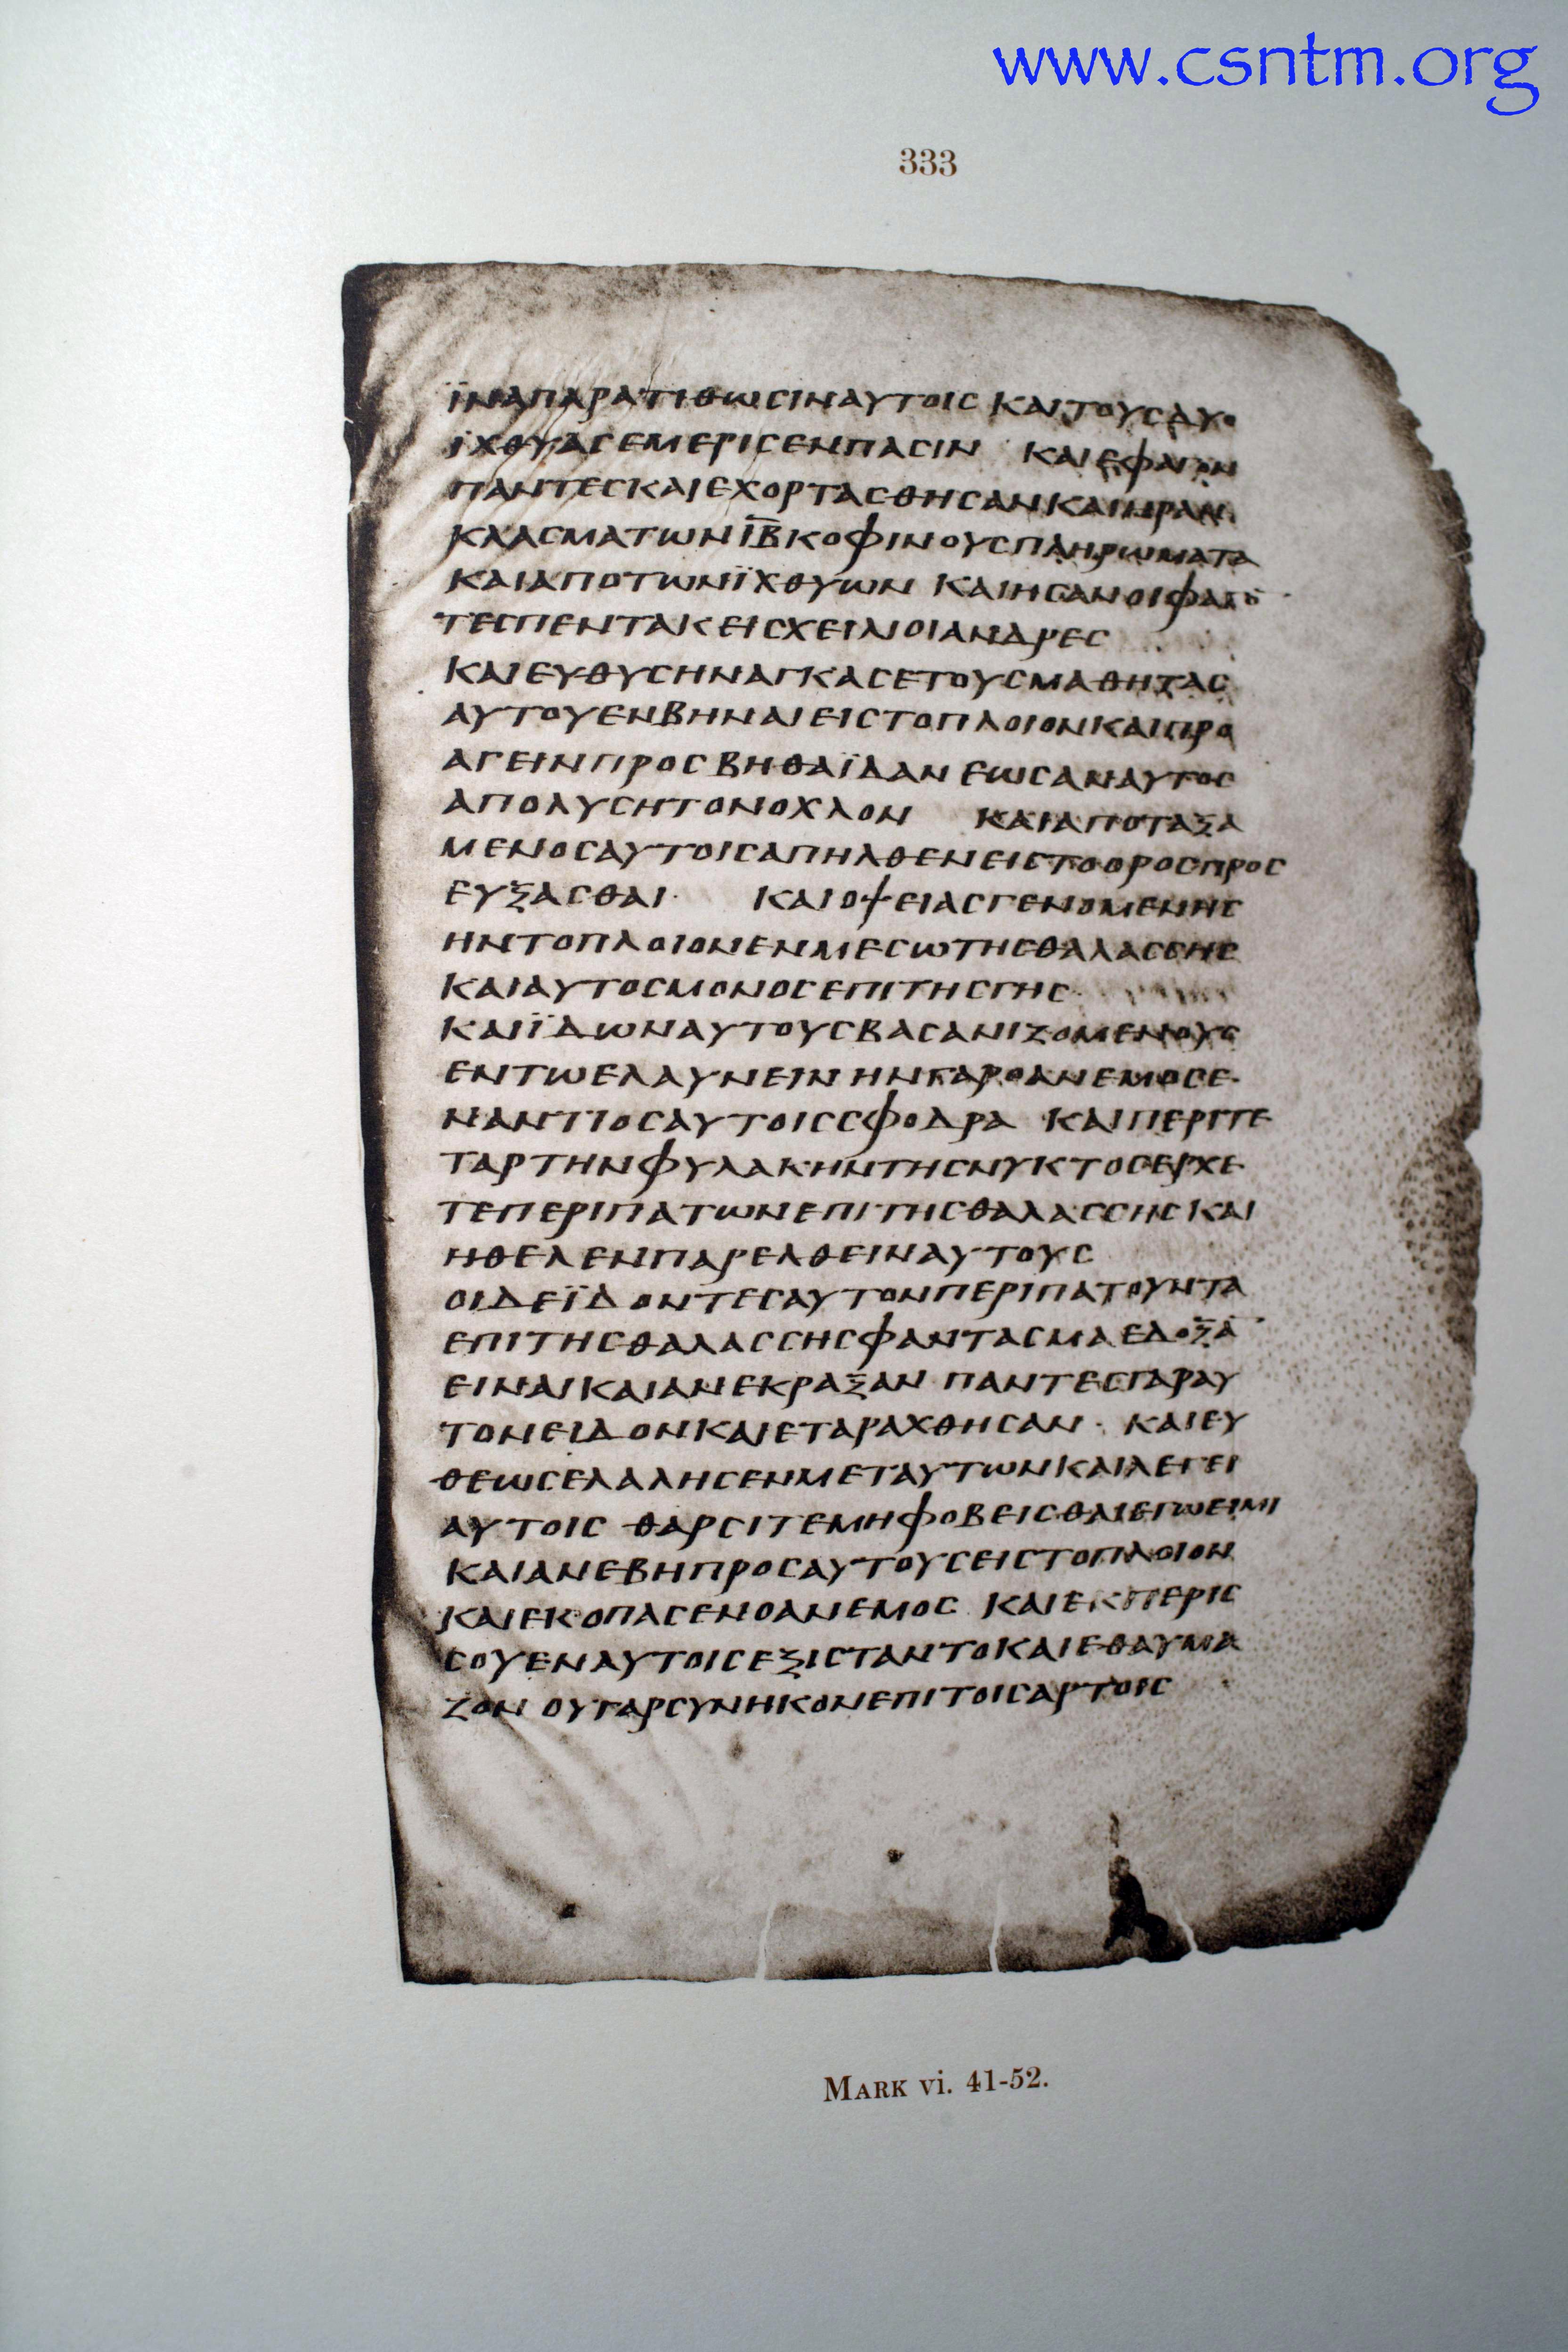 www.csntm.org
333
ΪΝΑΠΑΡΑΤΙΘΩCΙΝΑΥΤΟΙC ΚΑΙΤΟΥCΔΥΟ
ΪΧΘΥΑCΕΜΕΡΙCΕΝΠΑCΙΝ ΚΑΙΕΦΑΓΟΝ
ΠΑΝΤΕCΚΑΙΕΧΟΡΤΑCΘΗCΑΝΚΑΙΗΡΑΝ
ΚΛΑCΜΑΤΩΝΙ̅Β̅ΚΟΦΙΝΟΥCΠΛΗΡΩΜΑΤΑ
ΚΑΙΑΠΟΤΩΝΪΧΘΥΩΝ ΚΑΙΗCΑΝΟΙΦΑΓΟ
ΤΕCΠΕΝΤΑΚΕΙCΧΕΙΛΙΟΙΑΝΔΡΕC
ΚΑΙΕΥΘΥCΗΝΑΓΚΑCΕΤΟΥCΜΑΘΗΤΑC
ΑΥΤΟΥΕΝΒΗΝΑΙΕΙCΤΟΠΛΟΙΟΝΚΑΙΠΡΟ
ΑΓΕΙΝΠΡΟCΒΗΘΑΪΔΑΝ ΕΩCΑΝΑΥΤΟC
ΑΠΟΛΥCΗΤΟΝΟΧΛΟΝ ΚΑΙΑΠΟΤΑΞΑ
ΜΕΝΟCΑΥΤΟΙCΑΠΗΛΘΕΝΕΙCΤΟΟΡΟCΠΡΟC
ΕΥΞΑCΘΑΙ· ΚΑΙΟΨΕΙΑCΓΕΝΟΜΕΝΗC
ΗΝΤΟΠΛΟΙΟΝΕΝΜΕCΩΤΗCΘΑΛΑCCΗC
ΚΑΙΑΥΤΟCΜΟΝΟCΕΠΙΤΗCΓΗC·
ΚΑΙΪΔΩΝΑΥΤΟΥCΒΑCΑΝΙΖΟΜΕΝΟΥC
ΕΝΤΩΕΛΑΥΝΕΙΝ ΗΝΓΑΡΟΑΝΕΜΟCΕ
ΝΑΝΤΙΟCΑΥΤΟΙCCΦΟΔΡΑ ΚΑΙΠΕΡΙΤΕ
ΤΑΡΤΗΝΦΥΛΑΚΗΝΤΗCΝΥΚΤΟCΕΡΧΕ
ΤΕΠΕΡΙΠΑΤΩΝΕΠΙΤΗCΘΑΛΑCCΗCΚΑΙ
ΗΘΕΛΕΝΠΑΡΕΛΘΕΙΝΑΥΤΟΥC
ΟΙΔΕΪΔΟΝΤΕCΑΥΤΟΝΠΕΡΙΠΑΤΟΥΝΤΑ
ΕΠΙΤΗCΘΑΛΑCCΗCΦΑΝΤΑCΜΑΕΔΟΞΑ̅
ΕΙΝΑΙΚΑΙΑΝΕΚΡΑΞΑΝ ΠΑΝΤΕCΓΑΡΑΥ
ΤΟΝΕΙΔΟΝΚΑΙΕΤΑΡΑΧΘΗCΑΝ· ΚΑΙΕΥ
ΘΕΩCΕΛΑΛΗCΕΝΜΕΤΑΥΤΩΝΚΑΙΛΕΓΕΙ
ΑΥΤΟΙC ΘΑΡCΙΤΕΜΗΦΟΒΕΙCΘΑΙΕΓΩΕΙΜΙ
ΚΑΙΑΝΕΒΗΠΡΟCΑΥΤΟΥCΕΙCΤΟΠΛΟΙΟΝ
ΚΑΙΕΚΟΠΑCΕΝΟΑΝΕΜΟC ΚΑΙΕΚΠΕΡΙC
CΟΥΕΝΑΥΤΟΙCΕΞΙCΤΑΝΤΟΚΑΙΕΘΑΥΜΑ
ΖΟΝ ΟΥΓΑΡCΥΝΗΚΟΝΕΠΙΤΟΙCΑΡΤΟΙC
MARK vi. 41-52.